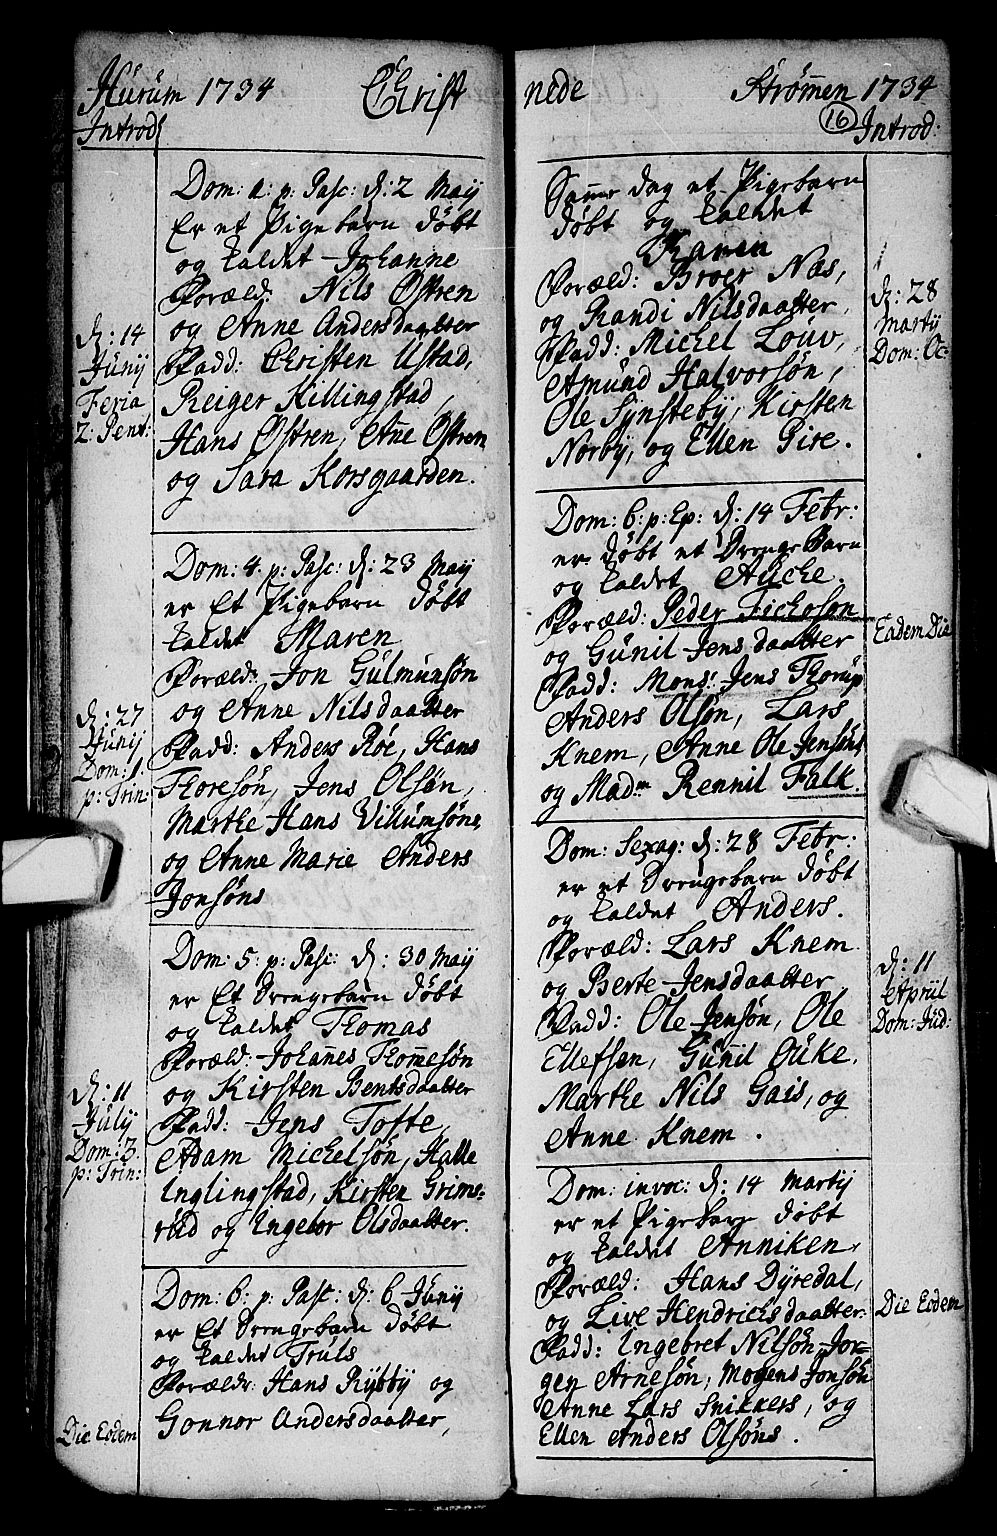 Hurum 1734
Christ
Introd:
Dom: 1: p: Pasc: d: 2 Maij
Er et Pigebarn døbt
og kaldet Johanne
Foræld: Nils Østren
og Anne Andersdaatter
Fadd: Christen Ustad,
Reiger Killingstad,
Hans Østren, Anne Østren
og Sara Korsgaarden.
d: 14
Junij
Feria
2: Pent:
Dom: 4. p: Pasc: d: 23 Maij
er Et Pigebarn døbt
kaldet Maren
Foræld: Jon Gulmunsøn
og Anne Nilsdaatter
Fadd: Anders Röe, Hans
Thoresøn, Jens Olsøn,
Marthe Hans Villumsøns
og Anne Marie Anders
Jonsøns
d: 27
Junij
Dom: 1.
p: Trin:
Dom: 5. p: Pasc: d: 30 Maij
er Et Drengebarn døbt
og kaldet Thomas
Foræld: Johannes Thommesøn
og Kirsten Bentsdaatter
Fadd: Jens Tofte,
Adam Michelsøn, Halle
Inglingstad, Kirsten Grims-
rud og Ingebor Olsdaatter.
d: 11
Julij
Dom: 3.
p: Trin:
Dom: 6: p: Pasc: d: 6 Junij
er Et Drengebarn døbt
og kaldet Truls
Forældr: Hans Rybby og
Gonnor Andersdaatter,
Die Eodem
nede
Strømmen 1734
16
Introd:
Samme dag et Pigebarn
døbt og kaldet
Karen
Foræld: Broer Næs,
og Randi Nilsdaatter,
Fadd: Michel Louv,
Amund Halvorsøn,
Ole Synsteby, Kirsten
Norby, og Ellen Gire.
d: 28
Martij
Dom: Oc:
Dom: 6: p: Ep: d: 14 Febr:
er døbt et DrengeBarn
og kaldet Aucke.
Foræld: Peder Fickoson
og Gunil Jensdaatter
Fadd: Mons: Jens Thorup
Anders Olsøn, Lars
Knem, Anne Ole Jensøns
og Madm Rennil Falk.
Eadem Die
Dom: Sexag: d: 28 Febr:
er et Drengebarn døbt
og kaldet Anders.
Foræld: Lars Knem
og Berte Jensdaatter
Fadd: Ole Jensøn, Ole
Ellefsen, Gunnil Ouke,
Marthe Nils Gais, og
Anne Knem.
d: 11
Apriil
Dom: Jud:
Dom: invoc: d: 14 Martij
er et Pigebarn døbt
og kaldet Anniken,
Foræld: Hans Dyredal,
og Live Hendrichsdaatter.
Fadd: Ingebret Nilsøn, Jör-
gen Arnesøn, Mogens Jonsøn
Anne Lars Snikkers, og
Ellen Anders Olsøns.
Die Eodem